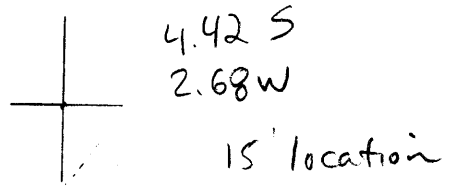 4.42 S
2.68 W
15' location